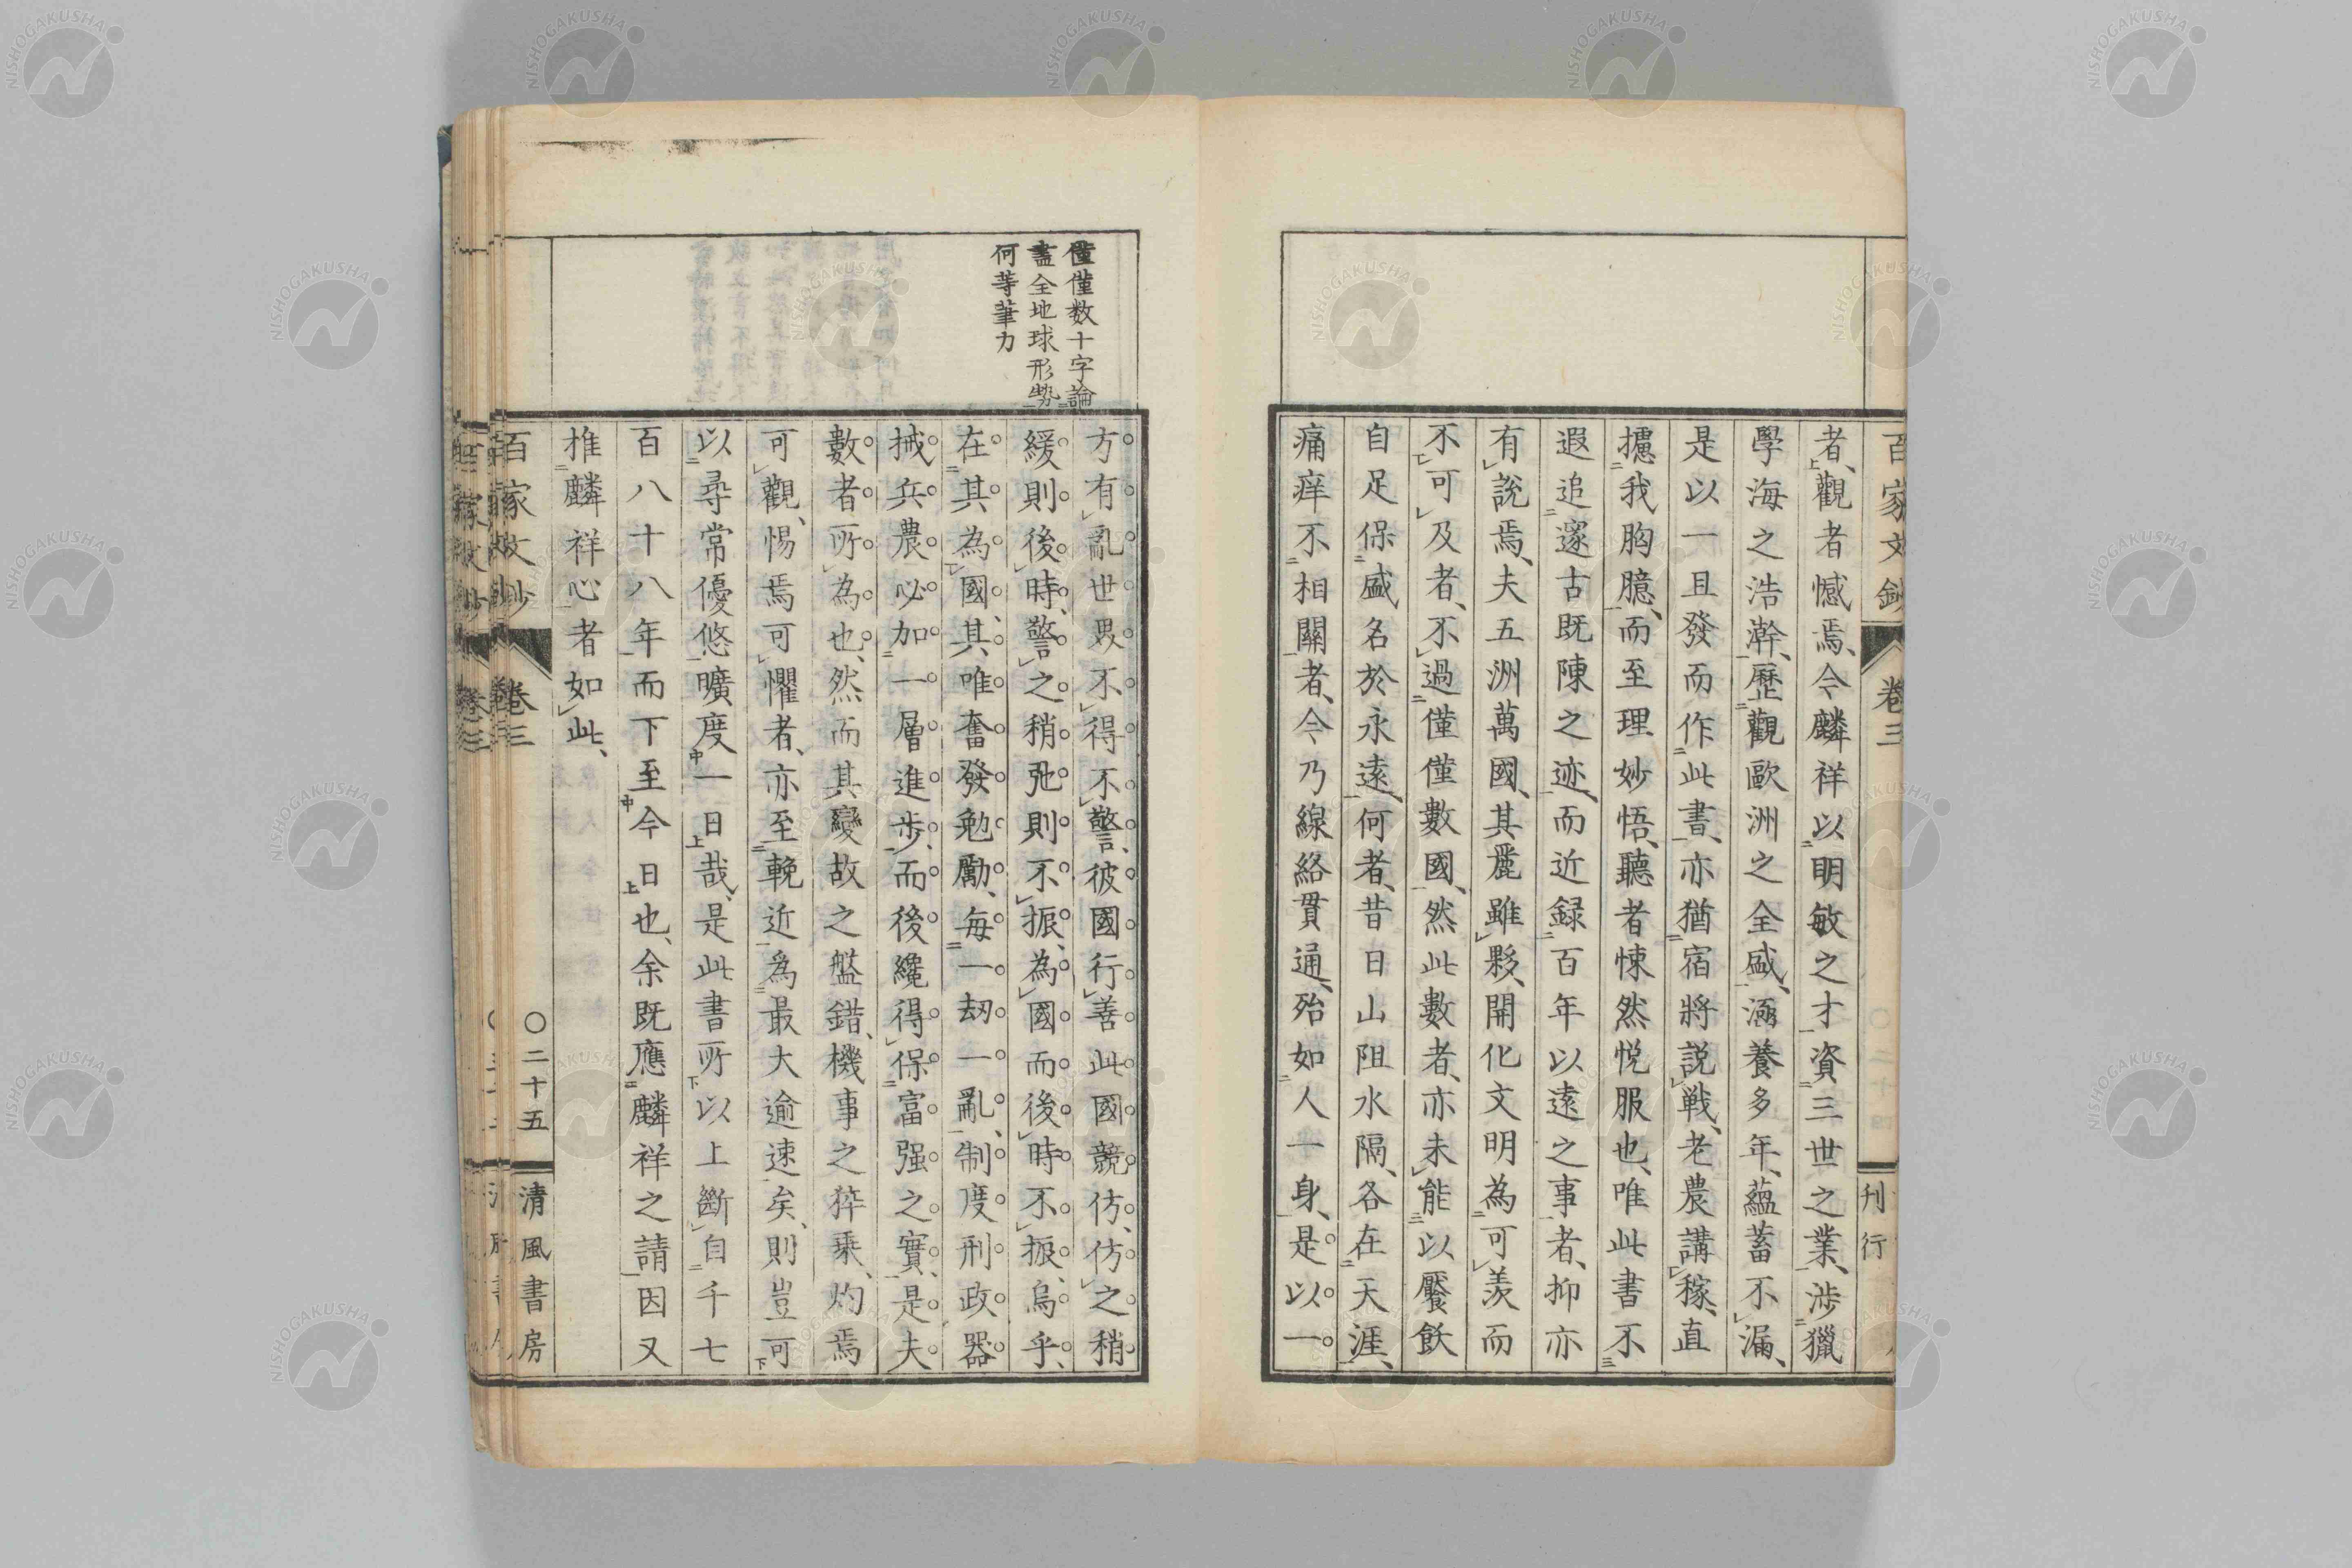 百家文鈔
卷三
刊行
者、觀者憾焉、今麟祥以明敏之才資三世之業、渉獵
學海之浩瀚、歷觀歐洲之全盛、涵養多年、蘊蓄不漏、
是以一旦發而作此書、亦猶宿將説戦、老農講稼、直
攄我胸臆、而至理妙悟、聽者悚然悦服也、唯此書不
遐追邃古既陳之迹、而近録百年以遠之事者、抑亦
有說焉、夫五洲萬國、其麗雖夥、開化文明為可羨而
不可及者、不過僅僅數國、然此數者、亦未能以饜飫
自足保盛名於永遠、何者、昔日山阻水隔、各在天涯、
痛痒不相關者、今乃線絡貫通、殆如人一身、是以一
僅僅数十字論
盡全地球形勢
何等筆力
方有亂世畏不得不警、彼國行善此國競仿、仿之稍
緩則後時、警之稍弛則不振、為國而後時不振、烏乎
在其為國、其唯奮發勉勵、每一刼一亂、制度刑政器
械兵農必加一層進步、而後纔得保富强之實、是夫
數者所為也、然而其變故之盤錯、機事之猝乗、灼焉
可觀、惕焉可懼者、亦至輓近為最大逾速矣、則豈可
以尋常優悠曠度一日哉、是此書所以上斷自千七
百八十八年而下至今日也、余既應麟祥之請因又
推麟祥心者如此、
百家文鈔
卷三
〇二十五
清風書房